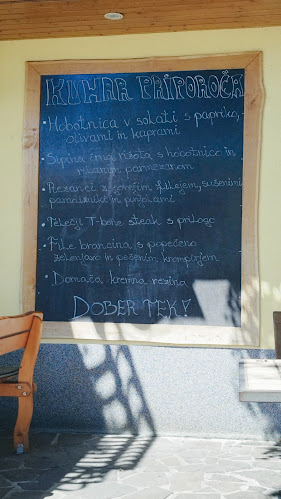 KUHAR PRIPOROČA
• Hobotnica v solati s papriko,
olivami in kaprami
• Sipina črna rižota s hobotnico in
ribanim parmezanom
• Rezanci z
filejem, sušenimi
paradižniki in pinjolami
• Teletji T-bone steak s prilogo
• File brancina s popečeno
zelenjavo in pečenim krompirjem
• Domača kremna rezina
DOBER TEK!